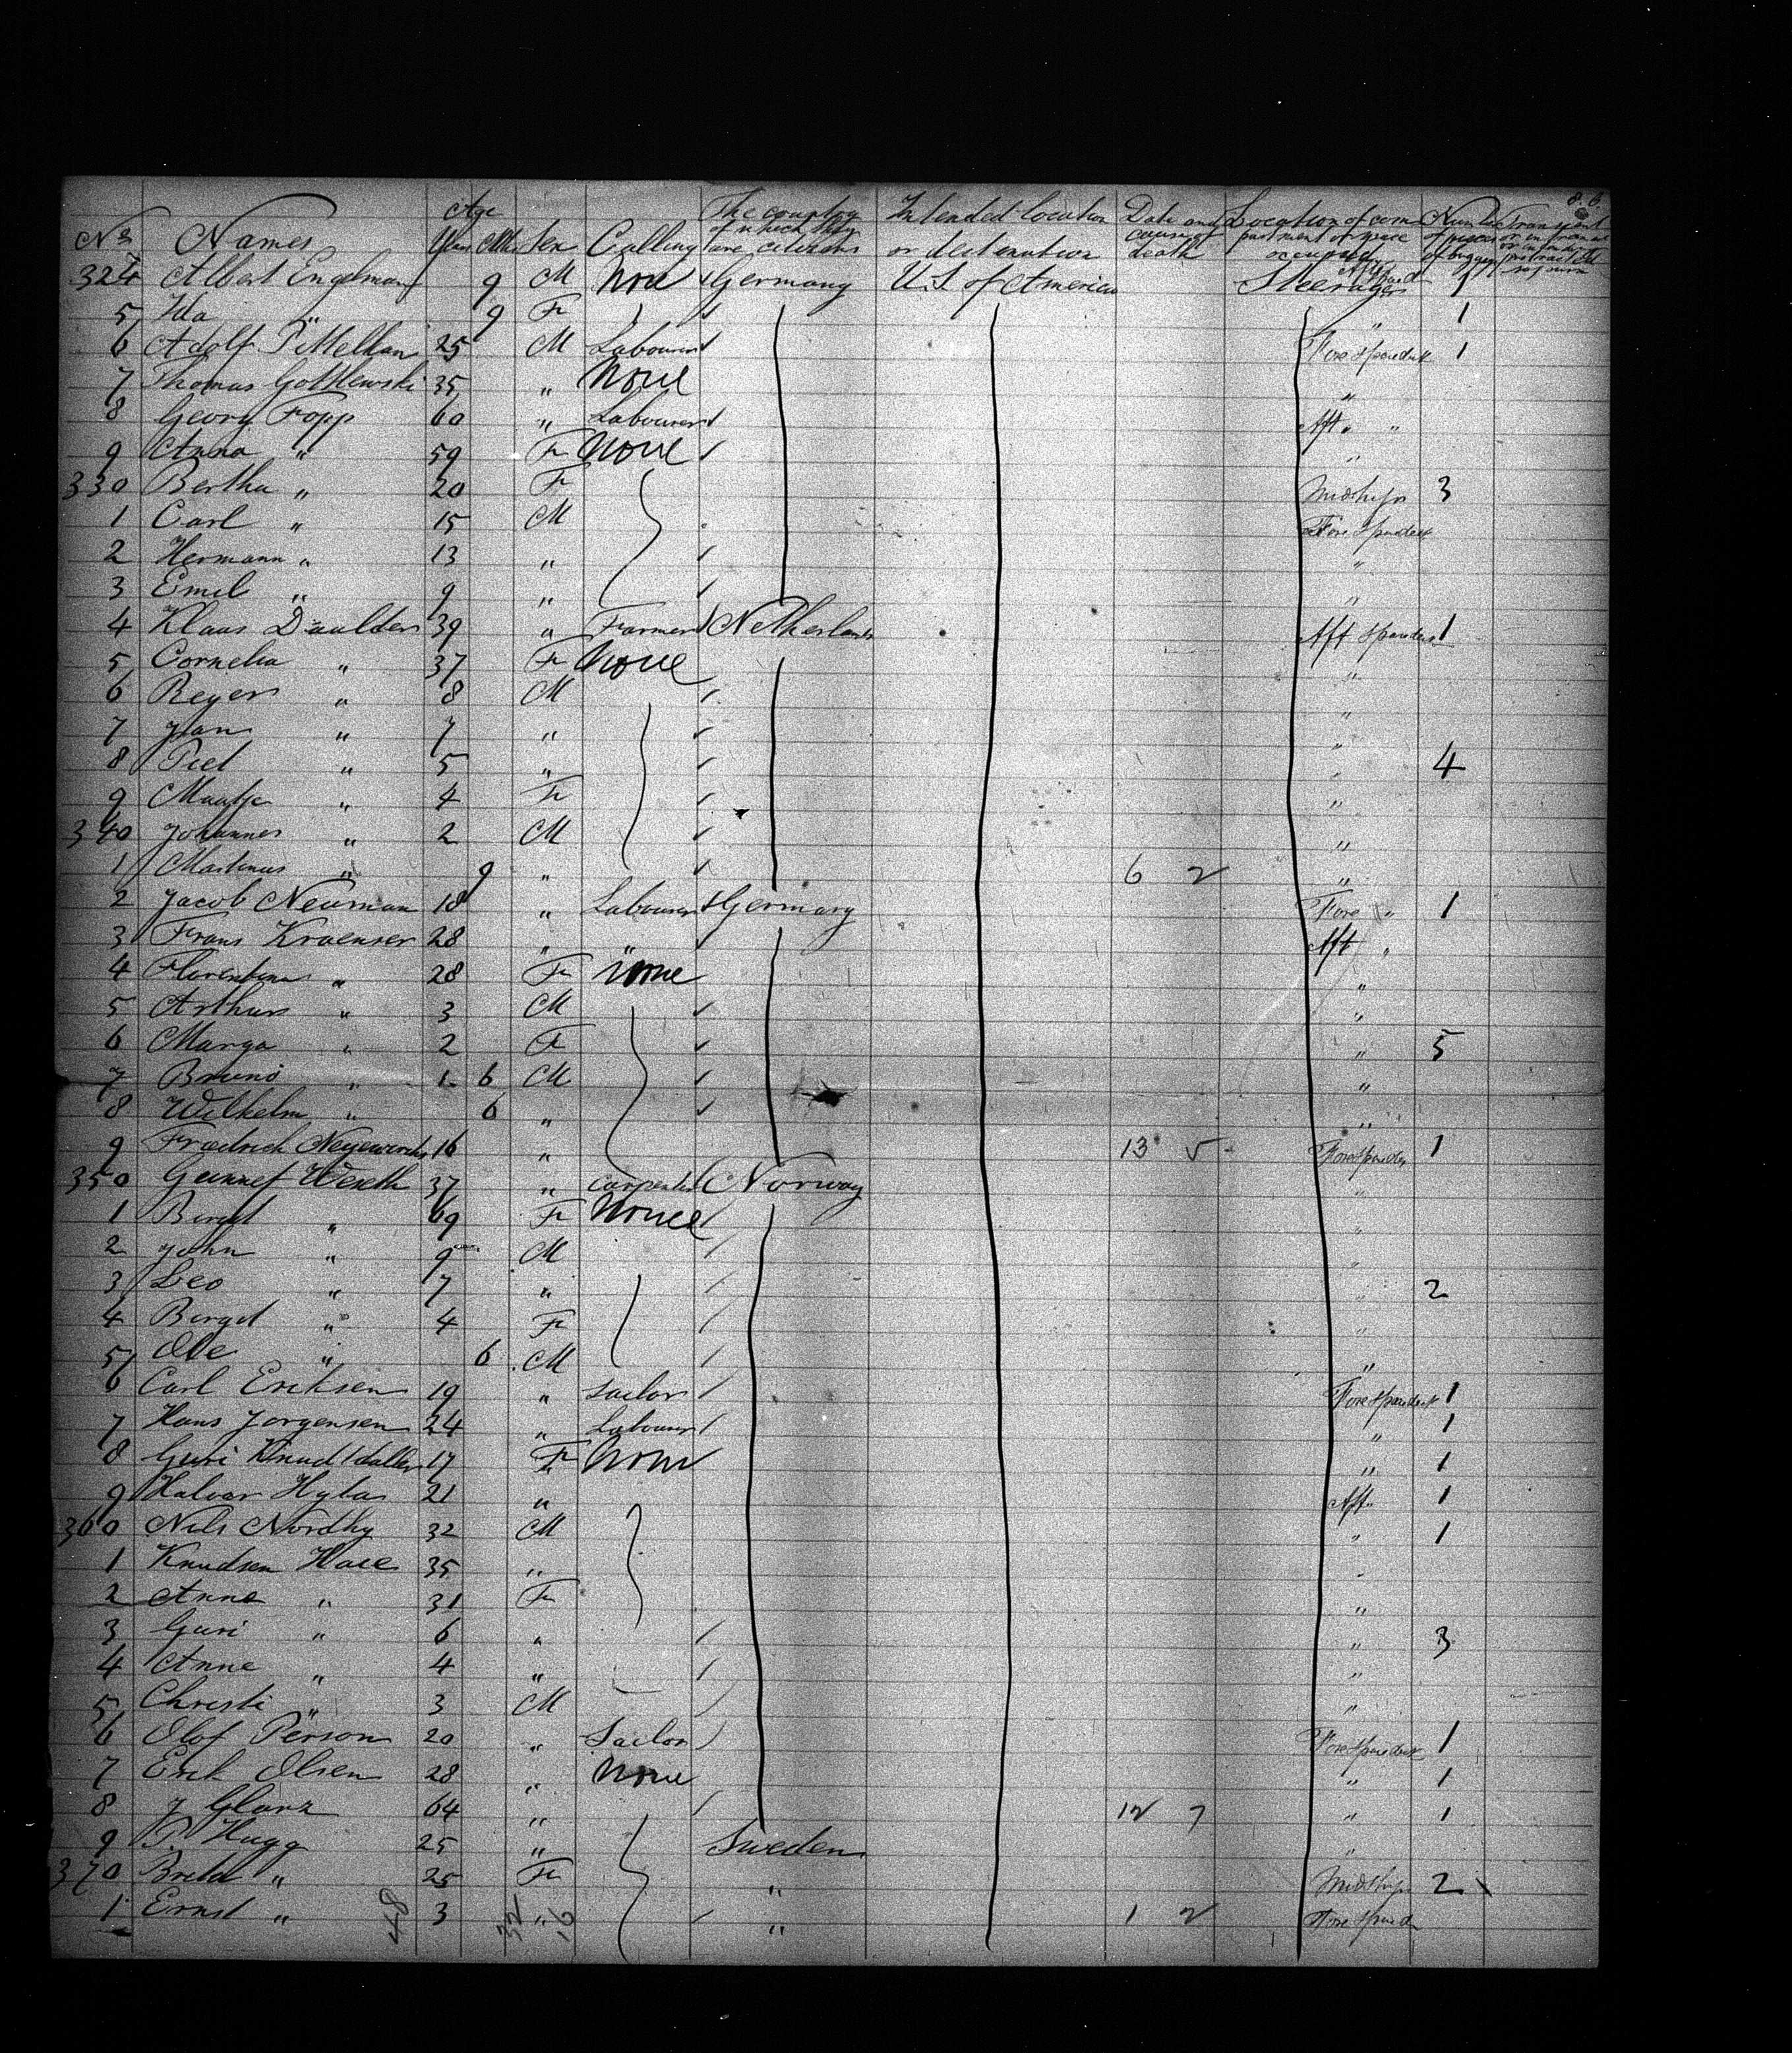 8.6
No Names Age Years Mths Sex Calling The country of which they are citizens Intended location or destination Date and cause of death Location of compartment or space occupied Number of pieces of baggage Transient
324 Albert Engelman 9 M None Germany U.S. of America Steerage 1
5 Ida " 9 F " 1
6 Adolf 25 M Labourer Fore spardeck 1
7 Thomas Gottlewski 35 " None "
8 Georg Fopp 60 " Labourer Aft " "
9 Anna " 59 F None "
330 Bertha " 20 F Midships 3
1 Carl " 15 M Fore spardeck
2 Hermann " 13 " "
3 Emil " 9 " "
4 Klaas Daalder 39 " Farmer Netherland Aft spardeck 1
5 Cornelia " 37 F None "
6 Reyer " 8 M "
7 Jan " 7 " "
8 Piet " 5 " " 4
9 Maatje " 4 F "
340 Johannes " 2 M "
1 Martinus " 9 " 6 2 "
2 Jacob Neuman 18 " Labourer Germany Fore " 1
3 Frans Kraenser 28 " " Aft "
4 Florentine " 28 F None "
5 Arthur " 3 M "
6 Marga " 2 F " 5
7 Bruno " 1 6 M "
8 Wilhelm " 6 " "
9 Friedrich 16 " 13 5 Fore spardeck 1
350 Gunnef Weseth 37 " Carpenter Norway "
1 Birgit " 69 F None "
2 John " 9 M "
3 Leo " 7 " " 2
4 Birgit " 4 F "
5 Ole " 6 M "
6 Carl Eriksen 19 " Sailor Fore spardeck 1
7 Hans Jorgensen 24 " Labourer " 1
8 Guri 17 F None " 1
9 Halvor Hylas 21 " Aft 1
360 Nils Nordby 32 M " 1
1 Knudsen Hace 35 " "
2 Anne " 31 F "
3 Guri " 6 " " 3
4 Anne " 4 " "
5 Christi " 3 M "
6 Olof Person 20 " Sailor Fore spardeck 1
7 Erik Olsen 28 " None " 1
8 J Glanz 64 " 12 7 " 1
9 P Hugg 25 " Sweden "
370 " 25 F " Midship 2
1 Ernst " 3 " " 1 2 Fore spard
48 32 16